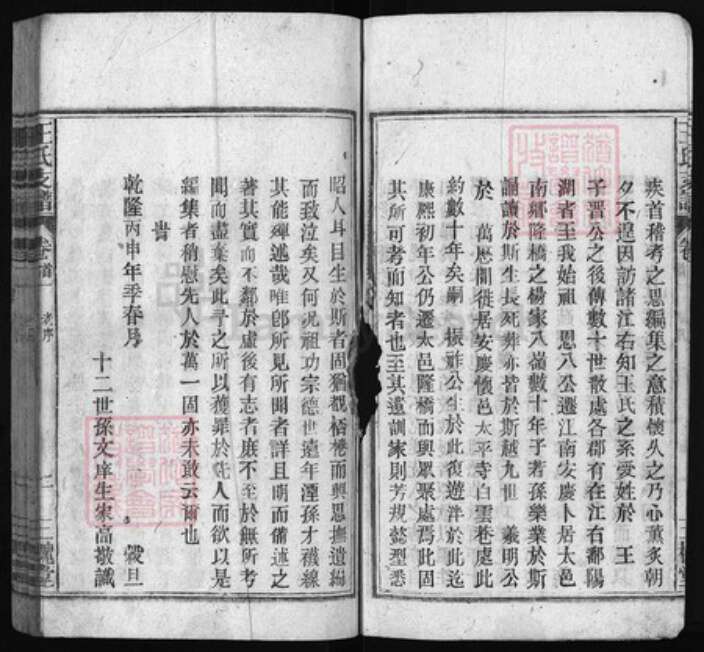 疾首稽考之思編集之意積懷久之乃心薰炙朝
夕不遑因訪諸江右知王氏之系受姓於　王
子晉公之後傳數十世散處各郡有在江右鄱陽
湖者王我始祖　思八公遷江南安慶卜居太邑
南鄉隆橋之楊家八嶺數十年子若孫樂業於斯
誦讀於斯生長死葬亦皆於斯越九世　義明公
於　萬歷間徙居安慶懷邑太平寺白雲巷處此
約數十年矣嗣　振雒公生於此復遊泮於此迄
康熙初年公仍遷太邑隆橋而與眾聚處焉此固
其所可考而知者也至其遺訓家則芳規懿型悉
昭人耳目生於斯者固猶覩桮棬而興思撫遺編
而致泣矣又何況祖功宗德世遠年湮孫才襪線
其能殫述哉唯卽所見所聞者詳且明而備述之
著其實而不鄰於虛後有志者庶不至於無所考
聞而盡棄矣此予之所以獲罪於先人而欲以是
編集者稍慰先人於萬一固亦未敢云爾也
旹
乾隆丙申年季春月　穀旦
十二世孫文庠生宋高敬識
王氏支譜
卷首
老序
二
三槐堂